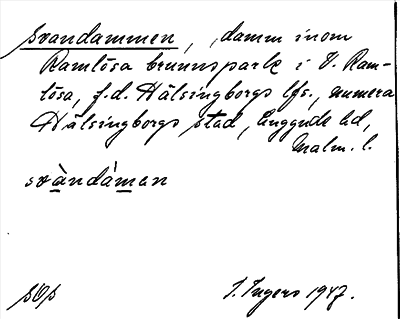 Svandammen, , damm inom
Ramlösa brunnspark i V. Ram-
lösa, f.d. Hälsingborgs lfs., numera
Hälsingborgs stad, Luggude hd,
Malm. l.
svàndámen
sOs
I. Ingers 1947.